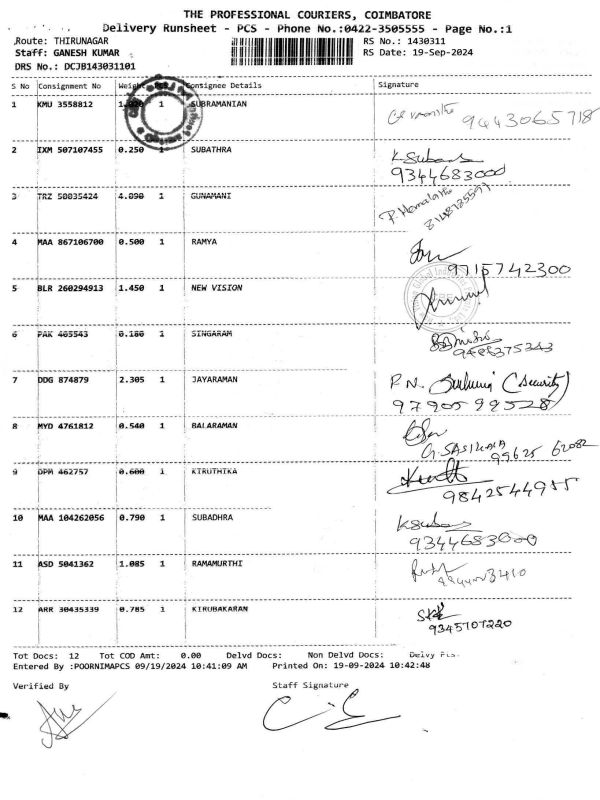 THE PROFESSIONAL COURIERS, COIMBATORE
Delivery Runsheet - PCS - Phone No.:0422-3505555 - Page No.:1
Route: THIRUNAGAR RS No.: 1430311
Staff: GANESH KUMAR RS Date: 19-Sep-2024
DRS No.: DCJB143031101
S No Consignment No Weight Consignee Details Signature
1 KMU 3558812 1 SUBRAMANIAN
9443065718
2 IXM 507107455 0.250 1 SUBATHRA K Subans
9344683000
3 TRZ 50035424 4.090 1 GUNAMANI
P. Hemalatha
4 MAA 867106700 0.500 1 RAMYA
9715742300
5 BLR 260294913 1.450 1 NEW VISION
6 PAK 405543 0.180 1 SINGARAM
9486375243
7 DDG 874879 2.305 1 JAYARAMAN P.N. (Security)
9790599528
8 MYD 4761812 0.540 1 BALARAMAN
G. SASIKALA 99625 62082
9 DPM 462757 0.600 1 KIRUTHIKA
9842544955
10 MAA 104262056 0.790 1 SUBADHRA K Subans
9344683000
11 ASD 5041362 1.085 1 RAMAMURTHI
12 ARR 30435339 0.785 1 KIRUBAKARAN
9345707220
Tot Docs: 12 Tot COD Amt: 0.00 Delvd Docs: Non Delvd Docs: Delvy
Entered By :POORNIMAPCS 09/19/2024 10:41:09 AM Printed On: 19-09-2024 10:42:48
Verified By Staff Signature